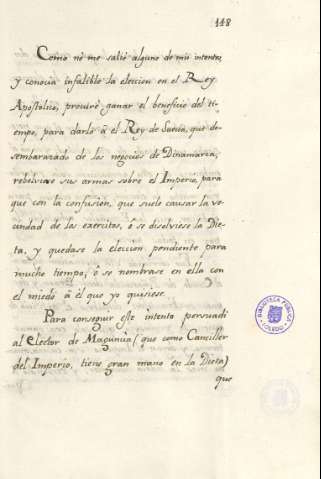 118
Como nò me salió alguno de mis intentos,
y conocia infalible la eleccion en el Rey
Apostolico, procurè ganar el beneficio del ti-
empo, para darlo â el Rey de Suecia, que de-
sembarazado de los negocios de Dinamarca,
rebolviese sus armas sobre el Imperio, para
que con la confusion, que suele causar la ve-
cindad de los exercitos, ó se disolviese la Die-
ta, y quedase la eleccion pendiente para
mucho tiempo, ò se nombrase en ella con
el miedo â él que yo quisiese.
Para conseguir este intento persuadi
al Elector de Maguncia (que como Canciller
del Imperio, tiene gran mano en la Dieta)
que
BIBLIOTECA PUBLICA
TOLEDO